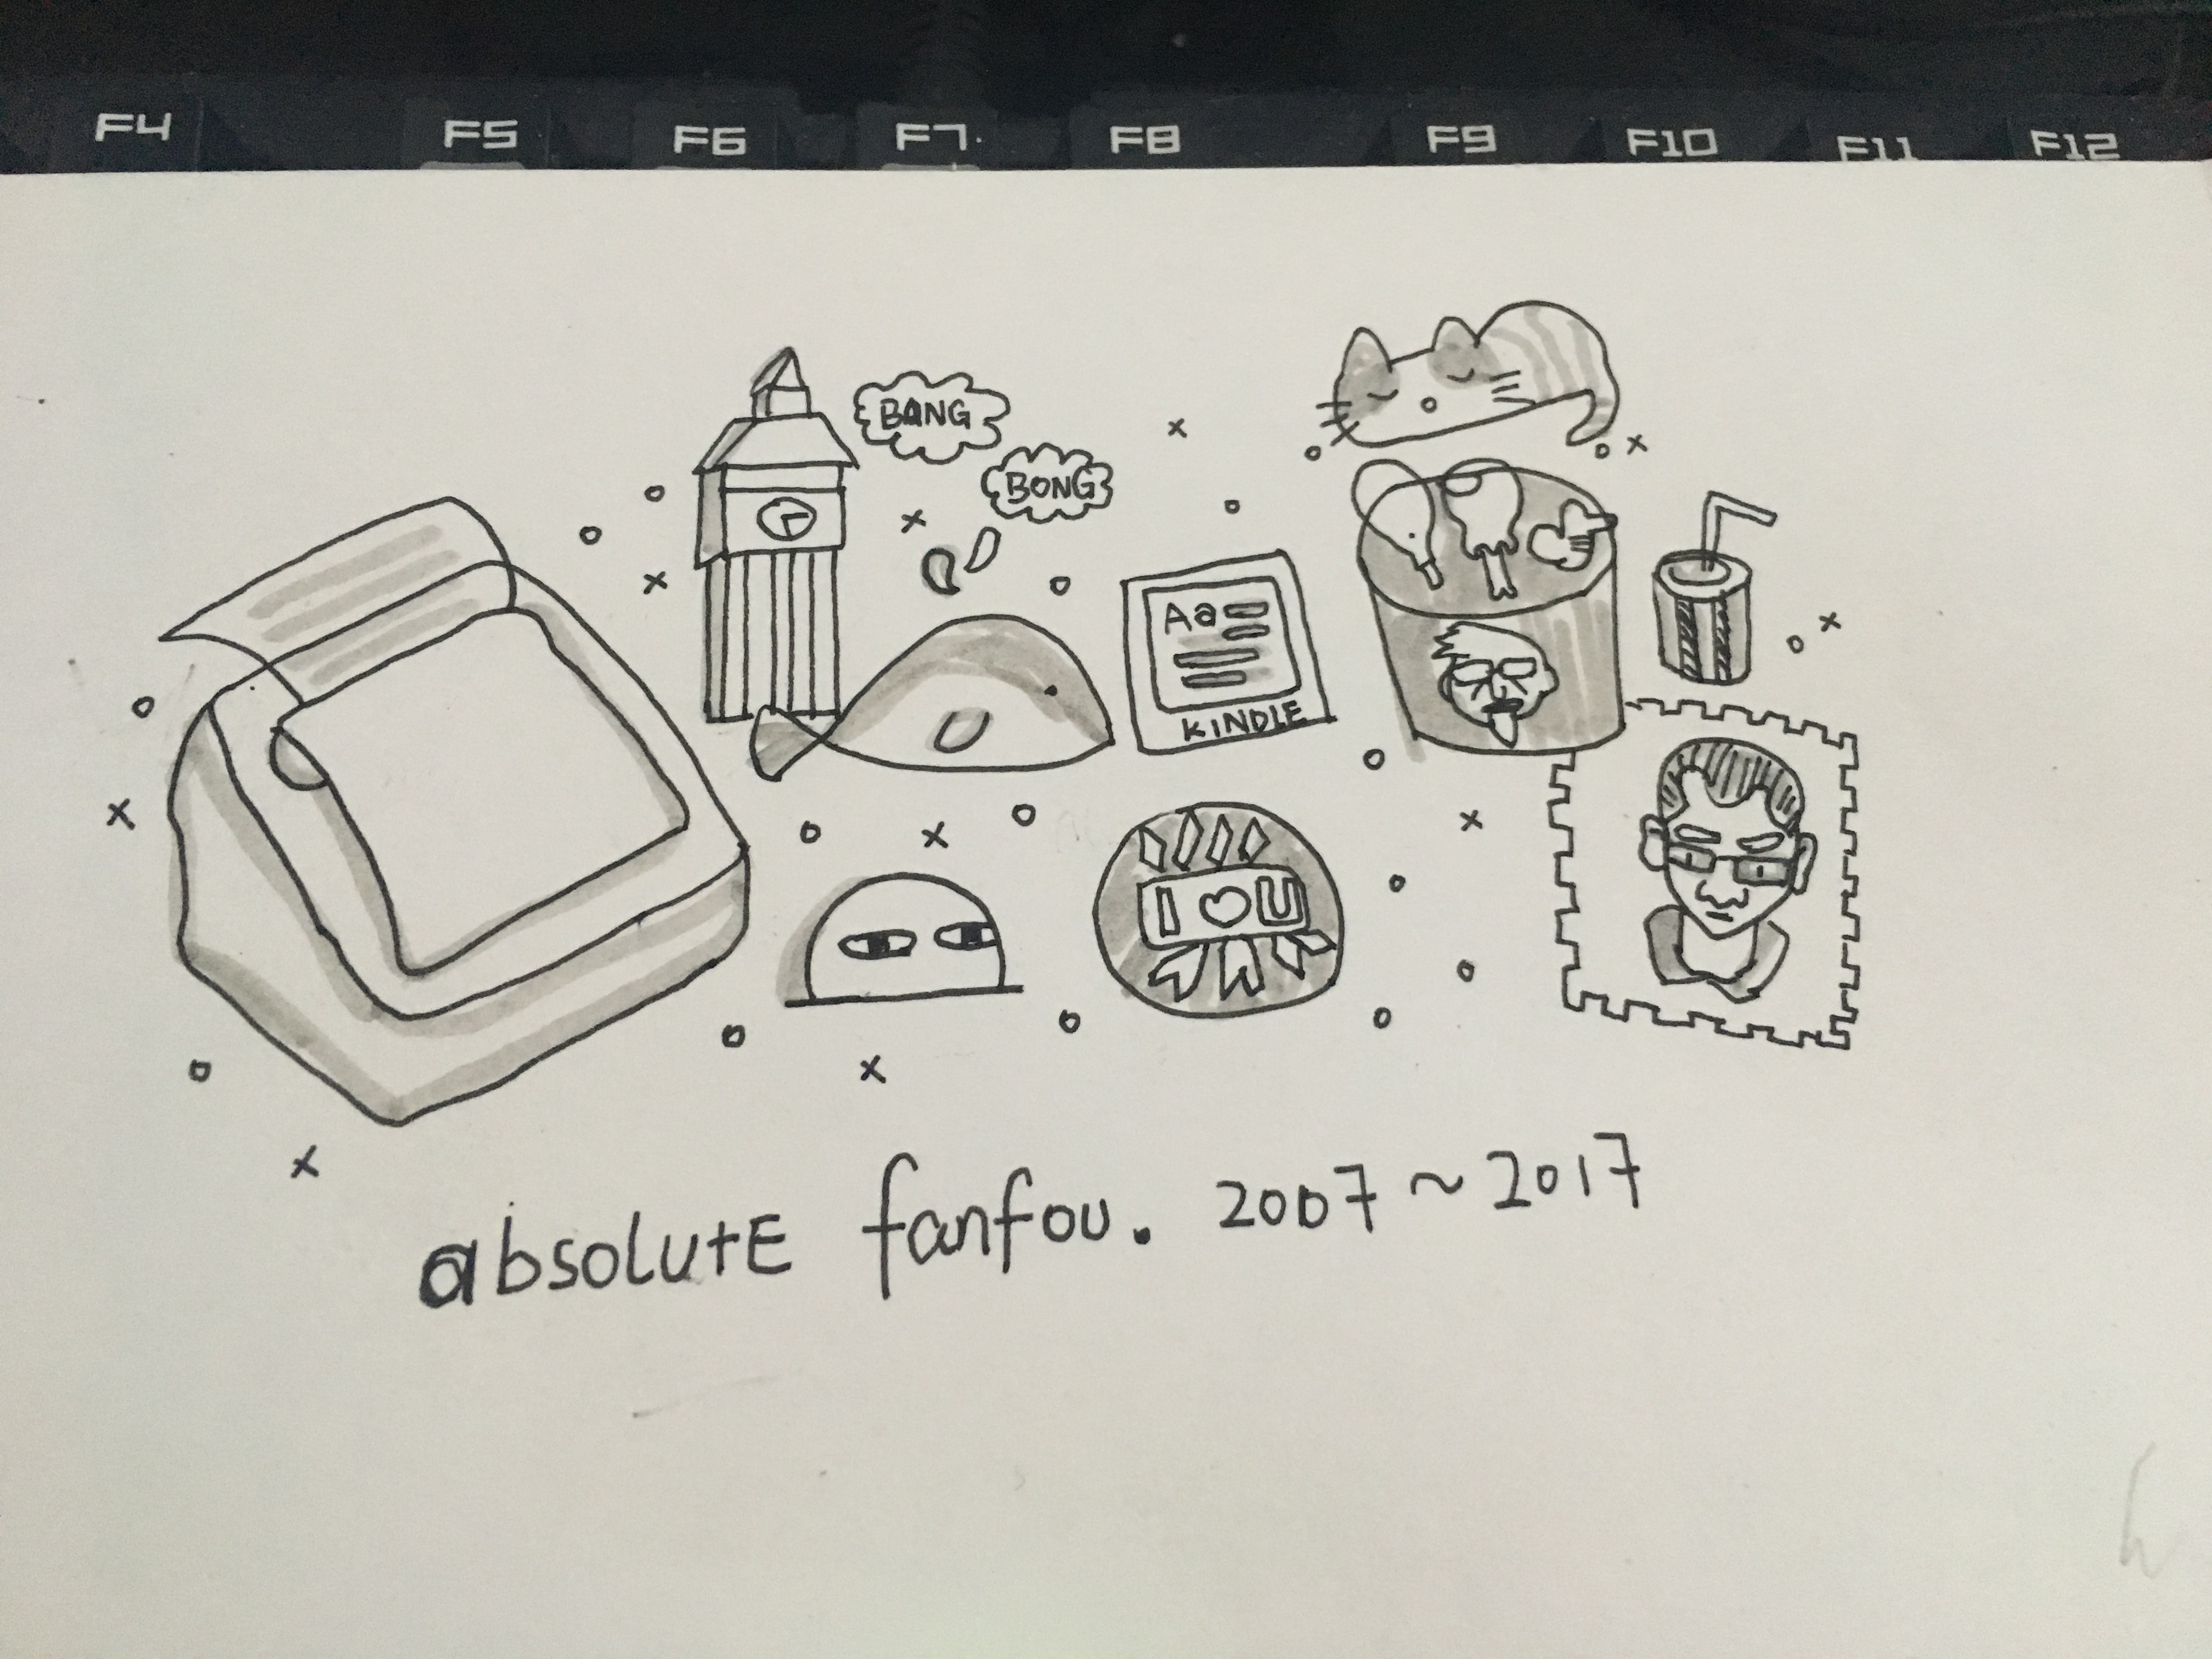 F4 F5 F6 F7 F8 F9 F10 F11 F12
BANG
BONG
Aa
KINDLE
I ♡ U
absolutE fanfou. 2007~2017